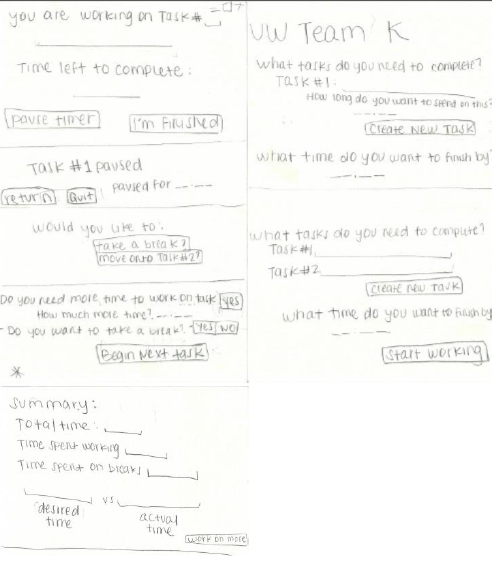 you are working on Task#
Time left to complete:
pause timer
I'm Finished
Task #1 paused
paused for --:--
return
Quit
would you like to:
take a break?
move onto Task#2?
Do you need more time to work on task
yes
How much more time? --:--
- Do you want to take a break? -
YES
NO
Begin Next task
*
Summary:
Total time:
Time spent working
Time spent on breaks
vs
desired
time
actual
time
work on more
UW Team K
what tasks do you need to complete?
Task #1:
How long do you want to spend on this?
Create New Task
what time do you want to finish by?
--:--
what tasks do you need to complete?
Task#1
Task#2
Create new task
what time do you want to finish by
--:--
Start working